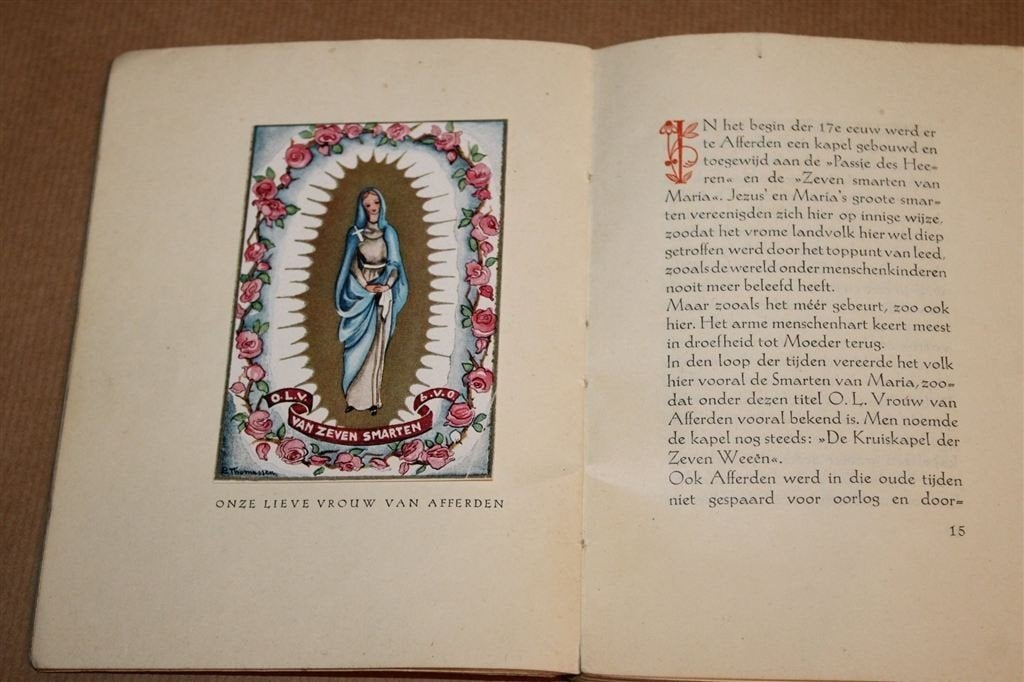 O.L.V. b.v.o.
VAN ZEVEN SMARTEN
P. Thomassen
ONZE LIEVE VROUW VAN AFFERDEN
IN het begin der 17e eeuw werd er
te Afferden een kapel gebouwd en
toegewijd aan de »Passie des Hee=
ren« en de »Zeven smarten van
Maria«. Jezus' en Maria's groote smar=
ten vereenigden zich hier op innige wijze,
zoodat het vrome landvolk hier wel diep
getroffen werd door het toppunt van leed,
zooals de wereld onder menschenkinderen
nooit meer beleefd heeft.
Maar zooals het méér gebeurt, zoo ook
hier. Het arme menschenhart keert meest
in droefheid tot Moeder terug.
In den loop der tijden vereerde het volk
hier vooral de Smarten van Maria, zoo=
dat onder dezen titel O. L. Vrouw van
Afferden vooral bekend is. Men noemde
de kapel nog steeds: »De Kruiskapel der
Zeven Weeën«.
Ook Afferden werd in die oude tijden
niet gespaard voor oorlog en door=
15